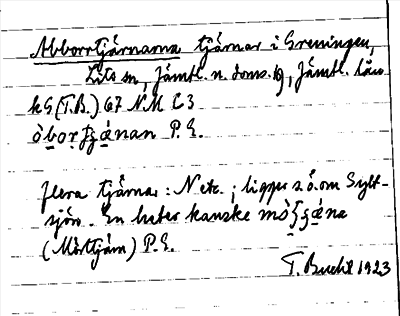 Abborrtjärnarna tjärnar i Greningen,
Lits sn, Jämtl. n. doms. , Jämtl. län
kG (T.B.) 67 N.M C3
òbortjánan P.E.
flera tjärnar: N etc.; ligger s.ö. om Sylt-
sjön. En heter kanske
(Mörttjärn) P.E.
T. Bucht 1923